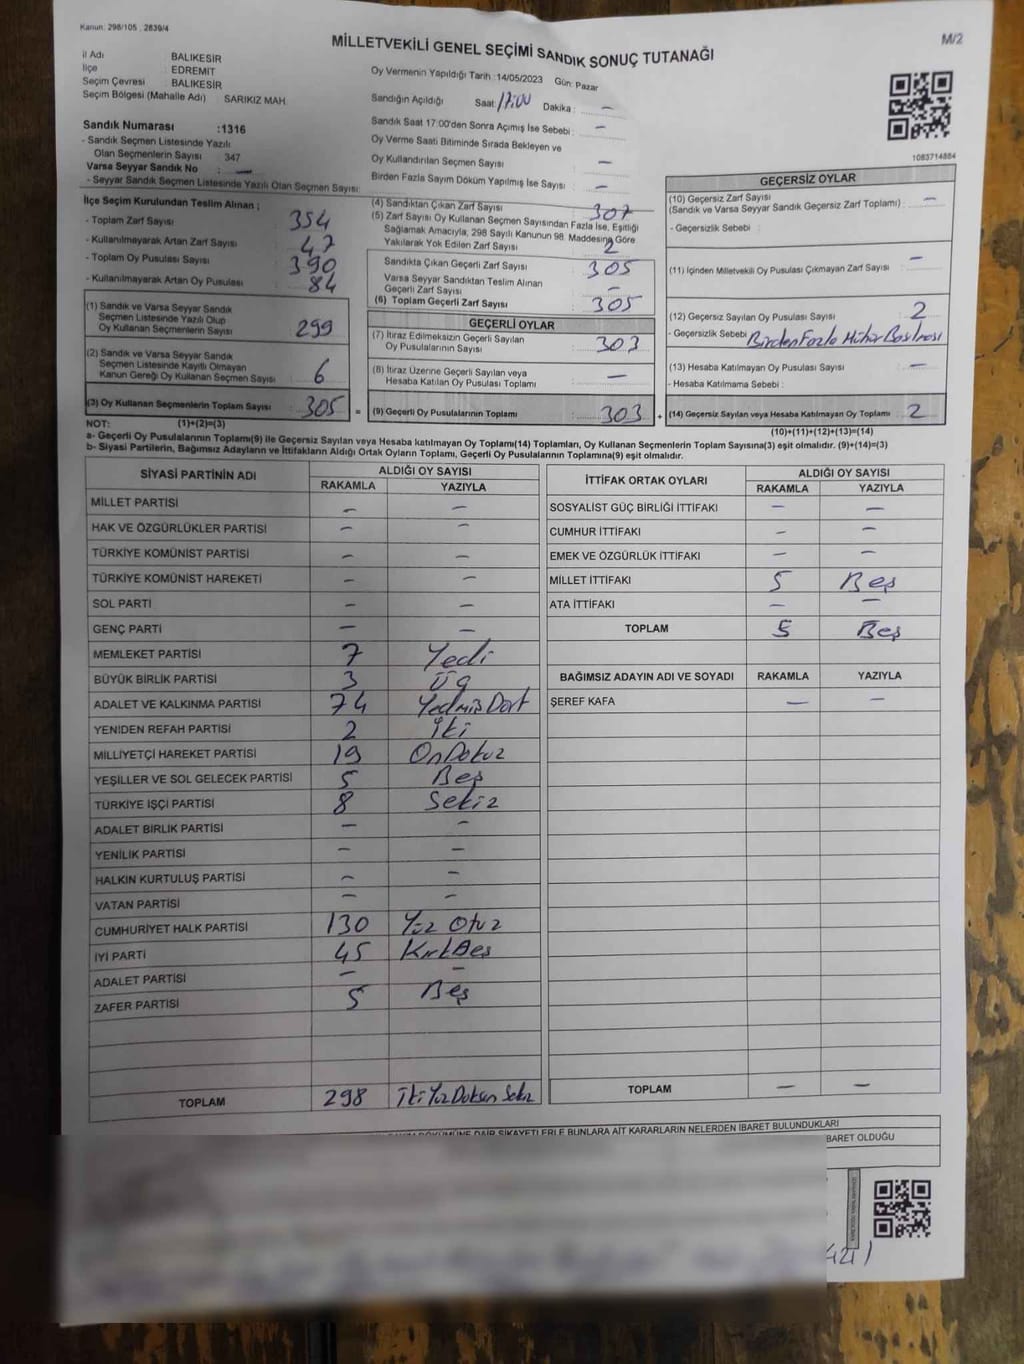 Kanun: 298/105 , 2839/4
M/2
MİLLETVEKİLİ GENEL SEÇİMİ SANDIK SONUÇ TUTANAĞI
İl Adı BALIKESİR
İlçe EDREMİT
Seçim Çevresi BALIKESİR
Seçim Bölgesi (Mahalle Adı) SARIKIZ MAH.
Sandık Numarası :1316
- Sandık Seçmen Listesinde Yazılı
Olan Seçmenlerin Sayısı 347
Varsa Seyyar Sandık No : —
- Seyyar Sandık Seçmen Listesinde Yazılı Olan Seçmen Sayısı:
Oy Vermenin Yapıldığı Tarih :14/05/2023 Gün: Pazar
Sandığın Açıldığı Saat: 17:00 Dakika : —
Sandık Saat 17:00'den Sonra Açımış İse Sebebi : —
Oy Verme Saati Bitiminde Sırada Bekleyen ve
Oy Kullandırılan Seçmen Sayısı : —
Birden Fazla Sayım Döküm Yapılmış İse Sayısı : —
1083714884
İlçe Seçim Kurulundan Teslim Alınan ;
- Toplam Zarf Sayısı : 354
- Kullanılmayarak Artan Zarf Sayısı : 47
- Toplam Oy Pusulası Sayısı : 390
- Kullanılmayarak Artan Oy Pusulası : 84
(1) Sandık ve Varsa Seyyar Sandık
Seçmen Listesinde Yazılı Olup
Oy Kullanan Seçmenlerin Sayısı : 299
(2) Sandık ve Varsa Seyyar Sandık
Seçmen Listesinde Kayıtlı Olmayan
Kanun Gereği Oy Kullanan Seçmen Sayısı : 6
(3) Oy Kullanan Seçmenlerin Toplam Sayısı : 305 =
(4) Sandıktan Çıkan Zarf Sayısı : 307
(5) Zarf Sayısı Oy Kullanan Seçmen Sayısından Fazla İse, Eşitliği
Sağlamak Amacıyla, 298 Sayılı Kanunun 98. Maddesine Göre
Yakılarak Yok Edilen Zarf Sayısı : 2
Sandıkta Çıkan Geçerli Zarf Sayısı : 305
Varsa Seyyar Sandıktan Teslim Alınan
Geçerli Zarf Sayısı : —
(6) Toplam Geçerli Zarf Sayısı : 305
GEÇERLİ OYLAR
(7) İtiraz Edilmeksizin Geçerli Sayılan
Oy Pusulalarının Sayısı : 303
(8) İtiraz Üzerine Geçerli Sayılan veya
Hesaba Katılan Oy Pusulası Toplamı : —
(9) Geçerli Oy Pusulalarının Toplamı : 303 +
GEÇERSİZ OYLAR
(10) Geçersiz Zarf Sayısı
(Sandık ve Varsa Seyyar Sandık Geçersiz Zarf Toplamı) : —
- Geçersizlik Sebebi :
(11) İçinden Milletvekili Oy Pusulası Çıkmayan Zarf Sayısı : —
(12) Geçersiz Sayılan Oy Pusulası Sayısı : 2
- Geçersizlik Sebebi : Birden Fazla Mühür Basılması
(13) Hesaba Katılmayan Oy Pusulası Sayısı : —
- Hesaba Katılmama Sebebi :
(14) Geçersiz Sayılan veya Hesaba Katılmayan Oy Toplamı : 2
(10)+(11)+(12)+(13)=(14)
NOT: (1)+(2)=(3)
a- Geçerli Oy Pusulalarının Toplamı(9) ile Geçersiz Sayılan veya Hesaba katılmayan Oy Toplamı(14) Toplamları, Oy Kullanan Seçmenlerin Toplam Sayısına(3) eşit olmalıdır. (9)+(14)=(3)
b- Siyasi Partilerin, Bağımsız Adayların ve İttifakların Aldığı Ortak Oyların Toplamı, Geçerli Oy Pusulalarının Toplamına(9) eşit olmalıdır.
SİYASİ PARTİNİN ADI ALDIĞI OY SAYISI
RAKAMLA YAZIYLA
MİLLET PARTİSİ — —
HAK VE ÖZGÜRLÜKLER PARTİSİ — —
TÜRKİYE KOMÜNİST PARTİSİ — —
TÜRKİYE KOMÜNİST HAREKETİ — —
SOL PARTİ — —
GENÇ PARTİ — —
MEMLEKET PARTİSİ 7 Yedi
BÜYÜK BİRLİK PARTİSİ 3 Üç
ADALET VE KALKINMA PARTİSİ 74 Yedmiş Dört
YENİDEN REFAH PARTİSİ 2 İki
MİLLİYETÇİ HAREKET PARTİSİ 19 On Dokuz
YEŞİLLER VE SOL GELECEK PARTİSİ 5 Beş
TÜRKİYE İŞÇİ PARTİSİ 8 Sekiz
ADALET BİRLİK PARTİSİ — —
YENİLİK PARTİSİ — —
HALKIN KURTULUŞ PARTİSİ — —
VATAN PARTİSİ — —
CUMHURİYET HALK PARTİSİ 130 Yüz Otuz
İYİ PARTİ 45 Kırk Beş
ADALET PARTİSİ — —
ZAFER PARTİSİ 5 Beş
TOPLAM 298 İki Yüz Doksan Sekiz
İTTİFAK ORTAK OYLARI ALDIĞI OY SAYISI
RAKAMLA YAZIYLA
SOSYALİST GÜÇ BİRLİĞİ İTTİFAKI — —
CUMHUR İTTİFAKI — —
EMEK VE ÖZGÜRLÜK İTTİFAKI — —
MİLLET İTTİFAKI 5 Beş
ATA İTTİFAKI — —
TOPLAM 5 Beş
BAĞIMSIZ ADAYIN ADI VE SOYADI RAKAMLA YAZIYLA
ŞEREF KAFA — —
TOPLAM — —
DÖKÜMÜNE DAİR ŞİKAYETLERLE BUNLARA AİT KARARLARIN NELERDEN İBARET BULUNDUKLARI
BARET OLDUĞU